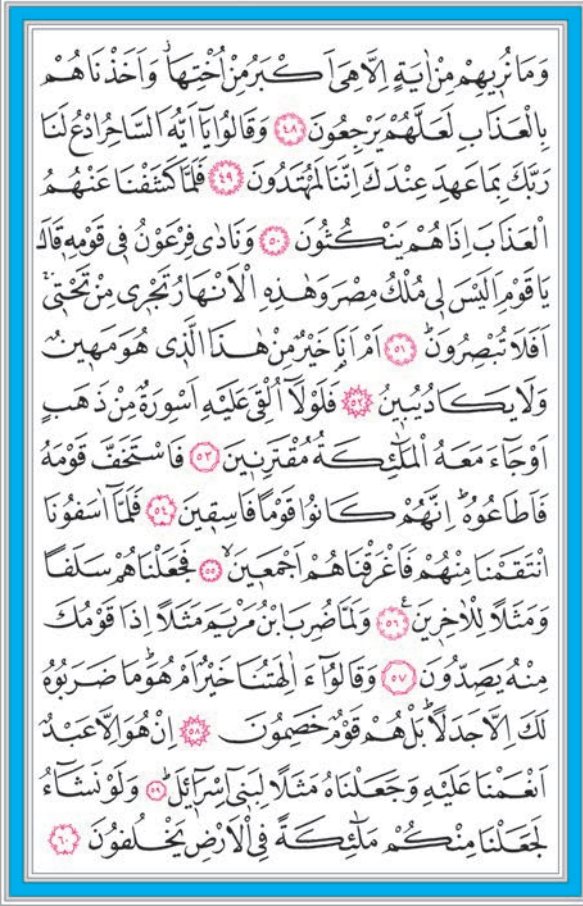 وَمَا نُرِيهِمْ مِنْ اٰيَةٍ اِلَّا هِيَ اَكْبَرُ مِنْ اُخْتِهَاۘ وَاَخَذْنَاهُمْ
بِالْعَذَابِ لَعَلَّهُمْ يَرْجِعُونَ ﴿٤٨﴾ وَقَالُوا يَٓا اَيُّهَ السَّاحِرُ ادْعُ لَنَا
رَبَّكَ بِمَا عَهِدَ عِنْدَكَ اِنَّنَا لَمُهْتَدُونَ ﴿٤٩﴾ فَلَمَّا كَشَفْنَا عَنْهُمُ
الْعَذَابَ اِذَا هُمْ يَنْكُثُونَ ﴿٥٠﴾ وَنَادٰى فِرْعَوْنُ فِي قَوْمِهِ قَالَ
يَا قَوْمِ اَلَيْسَ لِي مُلْكُ مِصْرَ وَهٰذِهِ الْاَنْهَارُ تَجْرِي مِنْ تَحْتِيۚ
اَفَلَا تُبْصِرُونَۜ ﴿٥١﴾ اَمْ اَنَا۬ خَيْرٌ مِنْ هٰذَا الَّذِي هُوَ مَهِينٌ
وَلَا يَكَادُ يُبِينُ ﴿٥٢﴾ فَلَوْلَٓا اُلْقِيَ عَلَيْهِ اَسْوِرَةٌ مِنْ ذَهَبٍ
اَوْ جَٓاءَ مَعَهُ الْمَلٰٓئِكَةُ مُقْتَرِنِينَ ﴿٥٣﴾ فَاسْتَخَفَّ قَوْمَهُ
فَاَطَاعُوهُۜ اِنَّهُمْ كَانُوا قَوْمًا فَاسِقِينَ ﴿٥٤﴾ فَلَمَّٓا اٰسَفُونَا
انْتَقَمْنَا مِنْهُمْ فَاَغْرَقْنَاهُمْ اَجْمَعِينَۙ ﴿٥٥﴾ فَجَعَلْنَاهُمْ سَلَفًا
وَمَثَلًا لِلْاٰخِرِينَ۟ ﴿٥٦﴾ وَلَمَّا ضُرِبَ ابْنُ مَرْيَمَ مَثَلًا اِذَا قَوْمُكَ
مِنْهُ يَصِدُّونَ ﴿٥٧﴾ وَقَالُٓوا ءَاٰلِهَتُنَا خَيْرٌ اَمْ هُوَۜ مَا ضَرَبُوهُ
لَكَ اِلَّا جَدَلًاۜ بَلْ هُمْ قَوْمٌ خَصِمُونَ ﴿٥٨﴾ اِنْ هُوَ اِلَّا عَبْدٌ
اَنْعَمْنَا عَلَيْهِ وَجَعَلْنَاهُ مَثَلًا لِبَنِٓي اِسْرَٓائِيلَۜ ﴿٥٩﴾ وَلَوْ نَشَٓاءُ
لَجَعَلْنَا مِنْكُمْ مَلٰٓئِكَةً فِي الْاَرْضِ يَخْلُفُونَ ﴿٦٠﴾